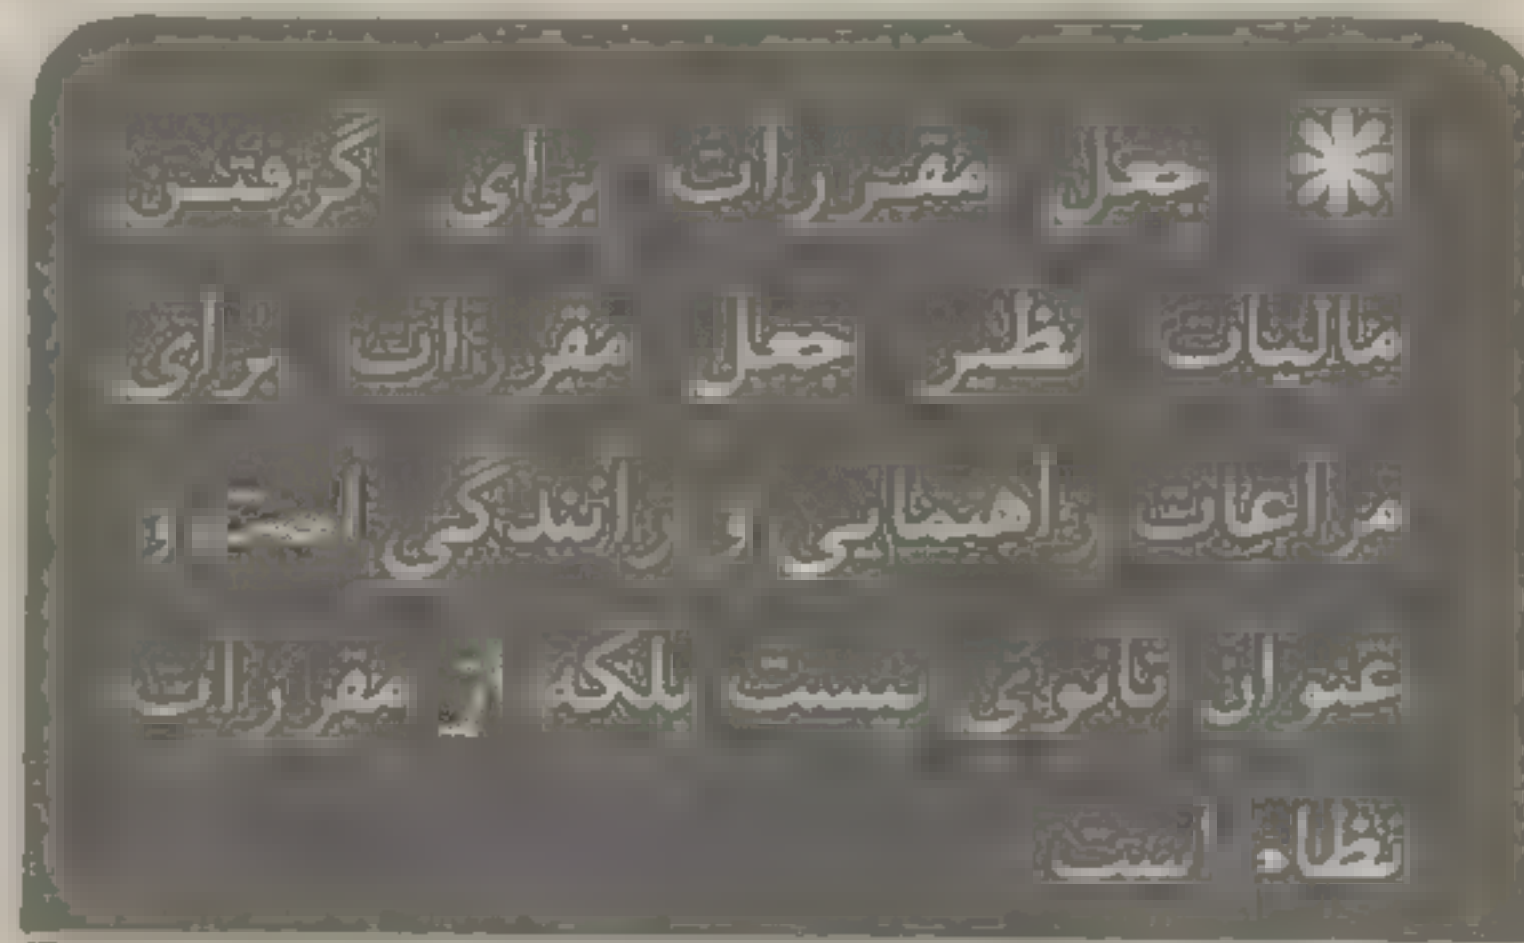 جعل مقررات برای گرفتن
مالیات نظیر جعل مقررات برای
مراعات راهنمایی و رانندگی است و
عنوان ثانوی نیست بلکه از مقررات
نظام است